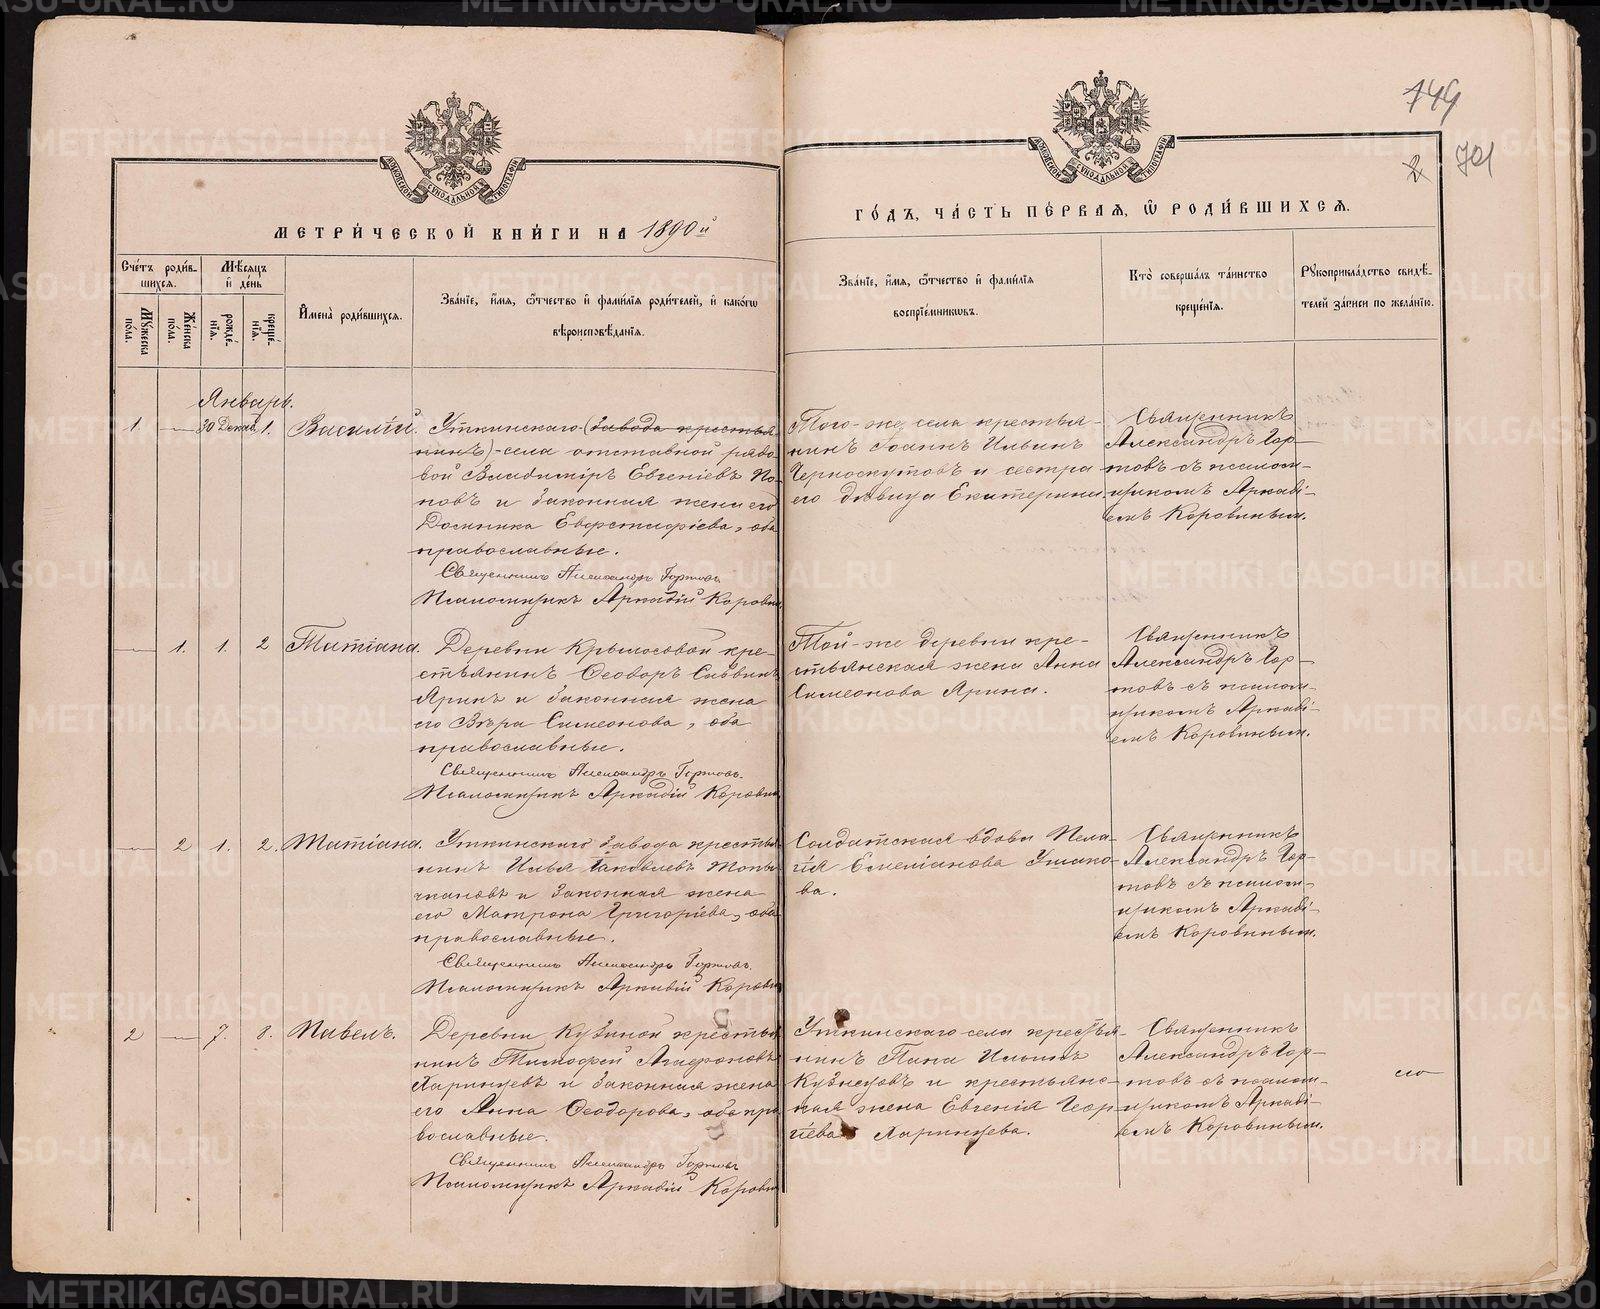 749
2 701
МОСКОВСКОЙ СѴНОДАЛЬНОЙ ТИПОГРАФІИ
МОСКОВСКОЙ СѴНОДАЛЬНОЙ ТИПОГРАФІИ
МЕТРИ́ЧЕСКОЙ КНИ́ГИ НА 1890й
ГО́ДЪ, ЧА́СТЬ ПЕ́РВАЯ, Ѽ РОДИ́ВШИХСЯ.
Сче́тъ роди́в-
шихся.
Мꙋжеска по́ла.
Же́нска по́ла.
Мѣ́сяцъ
и҆ де́нь
рожде́-
нїя.
креще́-
нїя.
И҆мена̀ роди́вшихся.
Зва́нїе, и҆́мя, ѻ҆́тчество и҆ фами́лїя роди́телей, и҆ како́гѡ
вѣроисповѣ́данїя.
Зва́нїе, и҆́мя, ѻ҆́тчество и҆ фами́лїя
воспрїе́мникѡвъ.
Кто̀ соверша́лъ та́инство
креще́нїя.
Рꙋкоприкла́дство свидѣ́-
телей за́писи по жела́нїю.
Январь.
1. — 30 Декаб. 1. Василій.
Уткинскаго (завода крестья-
нинъ) - села отставной рядо-
вой Владиміръ Евгеніевъ По-
повъ и законная жена его
Домника Евфстафіева, оба
православные.
Священникъ Александръ Гортовъ
Псаломщикъ Аркадій Коровин
Того-же села крестья-
нинъ Іоаннъ Ильинъ
Черноскутовъ и сестра
его дѣвица Екатерина
Священникъ
Александръ Гор-
товъ съ псалом-
щикомъ Аркаді-
емъ Коровинымъ.
— 1. 1. 2 Татіана.
Деревни Крылосовой кре-
стьянинъ Ѳеодоръ Саввинъ
Яринъ и законная жена
его Вѣра Симеонова, оба
православные.
Священникъ Александръ Гортовъ.
Псаломщикъ Аркадій Коровин
Той-же деревни кре-
стьянская жена Анна
Симеонова Ярина.
Священникъ
Александръ Гор-
товъ съ псалом-
щикомъ Аркаді-
емъ Коровинымъ.
— 2 1. 2. Татіана.
Уткинскаго завода крестья
нинъ Илья Іаковлевъ Топы-
чкановъ и законная жена
его Матрона Григоріева, оба
православные.
Священникъ Александръ Гортовъ.
Псаломщикъ Аркадій Коровин
Солдатская вдова Пела-
гія Емеліанова Ушако-
ва.
Священникъ
Александръ Гор-
товъ съ псалом-
щикомъ Аркаді-
емъ Коровинымъ.
2 — 7. 8. Павелъ.
Деревни Кузиной крестья
нинъ Тимофей Агафоновъ
Харинцевъ и законная жена
его Анна Ѳеодорова, оба пра
вославные.
Священникъ Александръ Гортовъ
Псаломщикъ Аркадій Коровин
Уткинскаго села крестья-
нинъ Ильинъ
Кузнецовъ и крестьянс-
кая жена Евгенія Геор
гіева Харинцева.
Священникъ
Александръ Гор-
товъ съ псалом-
щикомъ Аркаді-
емъ Коровинымъ.
METRIKI.GASO-URAL.RU